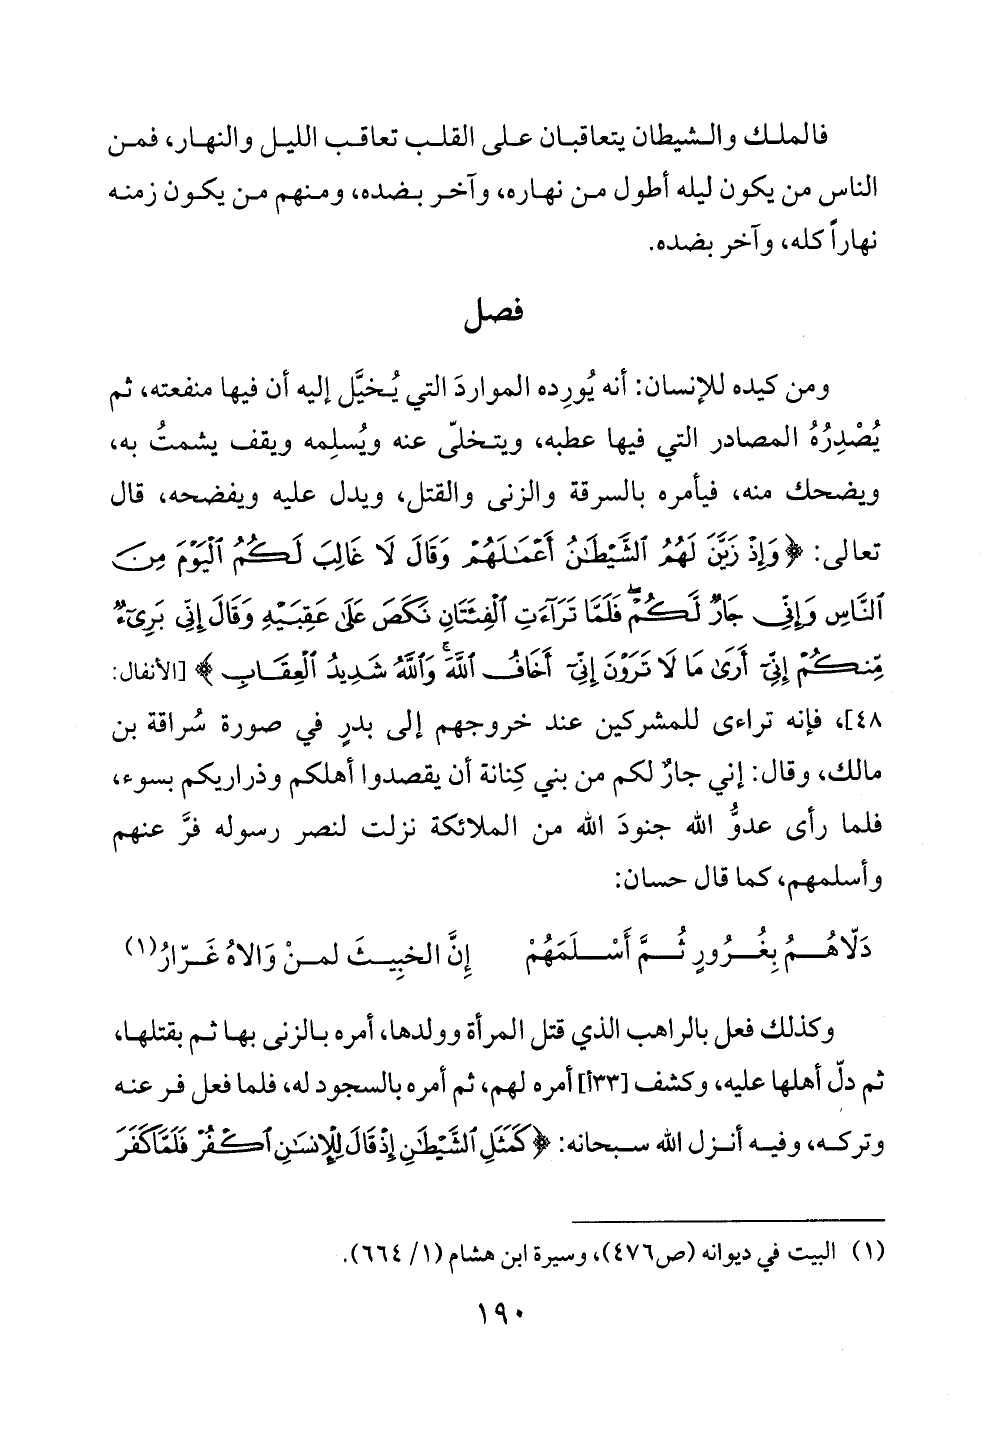 فالملك والشيطان يتعاقبان على القلب تعاقب الليل والنهار، فمن
الناس من يكون ليله أطول من نهاره، وآخر بضده، ومنهم من يكون زمنه
نهاراً كله، وآخر بضده.
فصل
ومن كيده للإنسان: أنه يُورِده المواردَ التي يُخيَّل إليه أن فيها منفعته، ثم
يُصْدِرُهُ المصادر التي فيها عطبه، ويتخلّى عنه ويُسلِمه ويقف يشمتُ به،
ويضحك منه، فيأمره بالسرقة والزنى والقتل، ويدل عليه ويفضحه، قال
تعالى: ﴿وَإِذْ زَيَّنَ لَهُمُ الشَّيْطَٰنُ أَعْمَٰلَهُمْ وَقَالَ لَا غَالِبَ لَكُمُ الْيَوْمَ مِنَ
النَّاسِ وَإِنِّي جَارٌ لَّكُمْ ۖ فَلَمَّا تَرَآءَتِ الْفِئَتَانِ نَكَصَ عَلَىٰ عَقِبَيْهِ وَقَالَ إِنِّي بَرِيٓءٌ
مِّنكُمْ إِنِّيٓ أَرَىٰ مَا لَا تَرَوْنَ إِنِّيٓ أَخَافُ اللَّهَ ۚ وَاللَّهُ شَدِيدُ الْعِقَابِ﴾ [الأنفال:
٤٨]، فإنه تراءى للمشركين عند خروجهم إلى بدرٍ في صورة سُراقة بن
مالك، وقال: إني جارٌ لكم من بني كِنانة أن يقصدوا أهلكم وذراريكم بسوء،
فلما رأى عدوُّ الله جنودَ الله من الملائكة نزلت لنصر رسوله فرَّ عنهم
وأسلمهم، كما قال حسان:
دَلّاهُمُ بِغُرُورٍ ثُمَّ أَسْلَمَهُمْ إِنَّ الخبِيثَ لمنْ وَالاهُ غَرّارُ(١)
وكذلك فعل بالراهب الذي قتل المرأة وولدها، أمره بالزنى بها ثم بقتلها،
ثم دلّ أهلها عليه، وكشف [٣٣أ] أمره لهم، ثم أمره بالسجود له، فلما فعل فر عنه
وتركه، وفيه أنزل الله سبحانه: ﴿كَمَثَلِ الشَّيْطَٰنِ إِذْ قَالَ لِلْإِنسَٰنِ اكْفُرْ فَلَمَّا كَفَرَ
(١) البيت في ديوانه (ص٤٧٦)، وسيرة ابن هشام (١/ ٦٦٤).
١٩٠